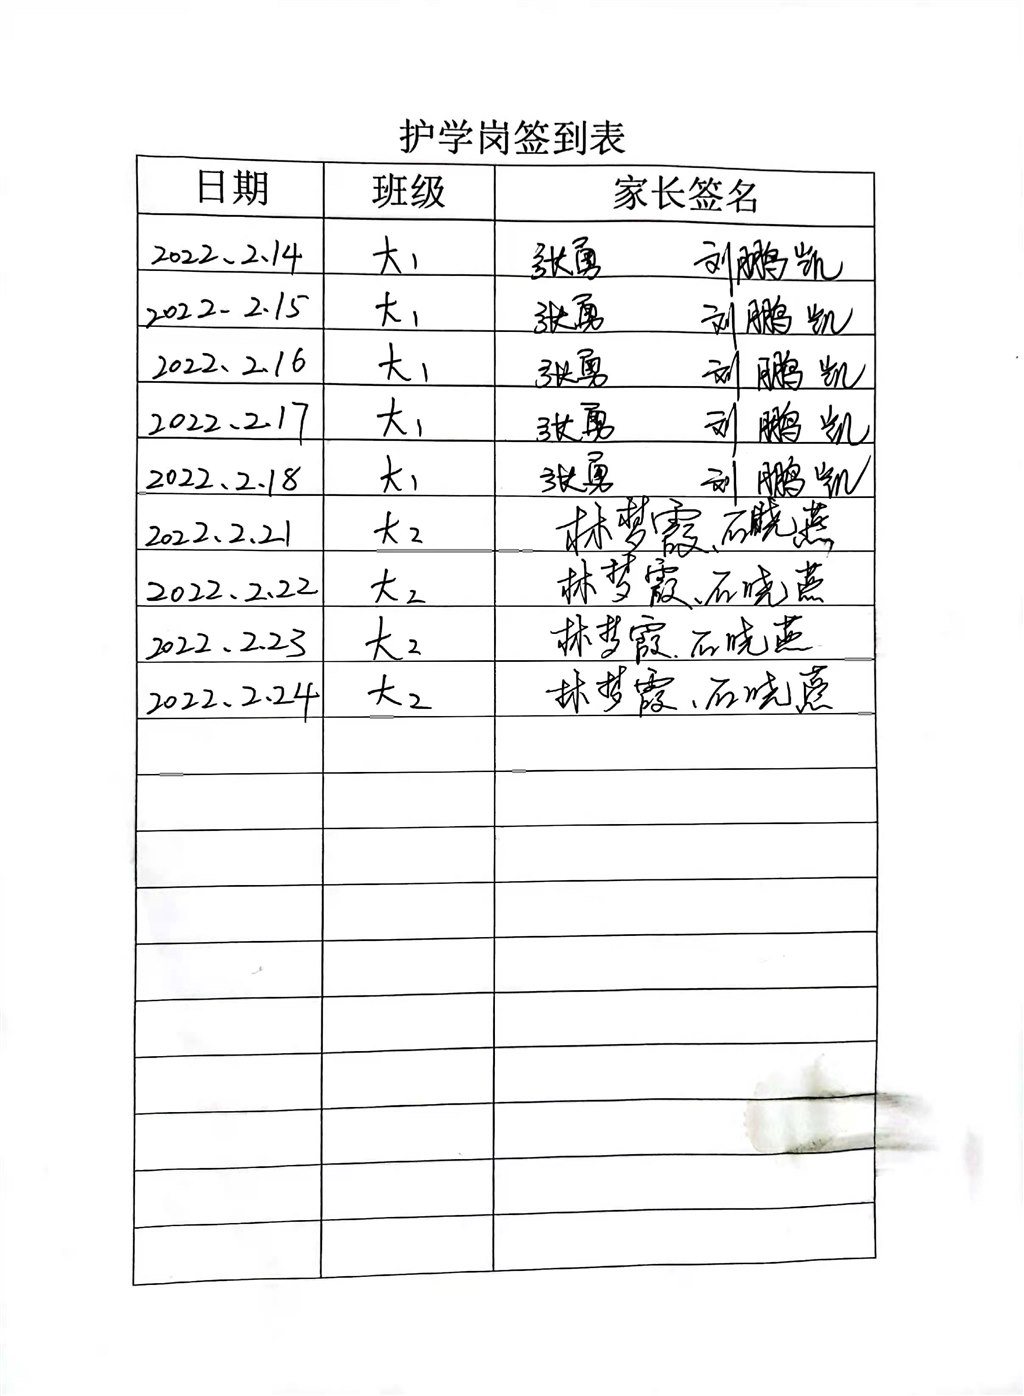 护学岗签到表
日期 班级 家长签名
2022、2.14 大1 张勇 刘鹏凯
2022-2.15 大1 张勇 刘鹏凯
2022、2.16 大1 张勇 刘鹏凯
2022.2.17 大1 张勇 刘鹏凯
2022.2.18 大1 张勇 刘鹏凯
2022.2.21 大2 林梦霞、石晓燕
2022.2.22 大2 林梦霞、石晓燕
2022、2.23 大2 林梦霞、石晓燕
2022、2.24 大2 林梦霞、石晓燕